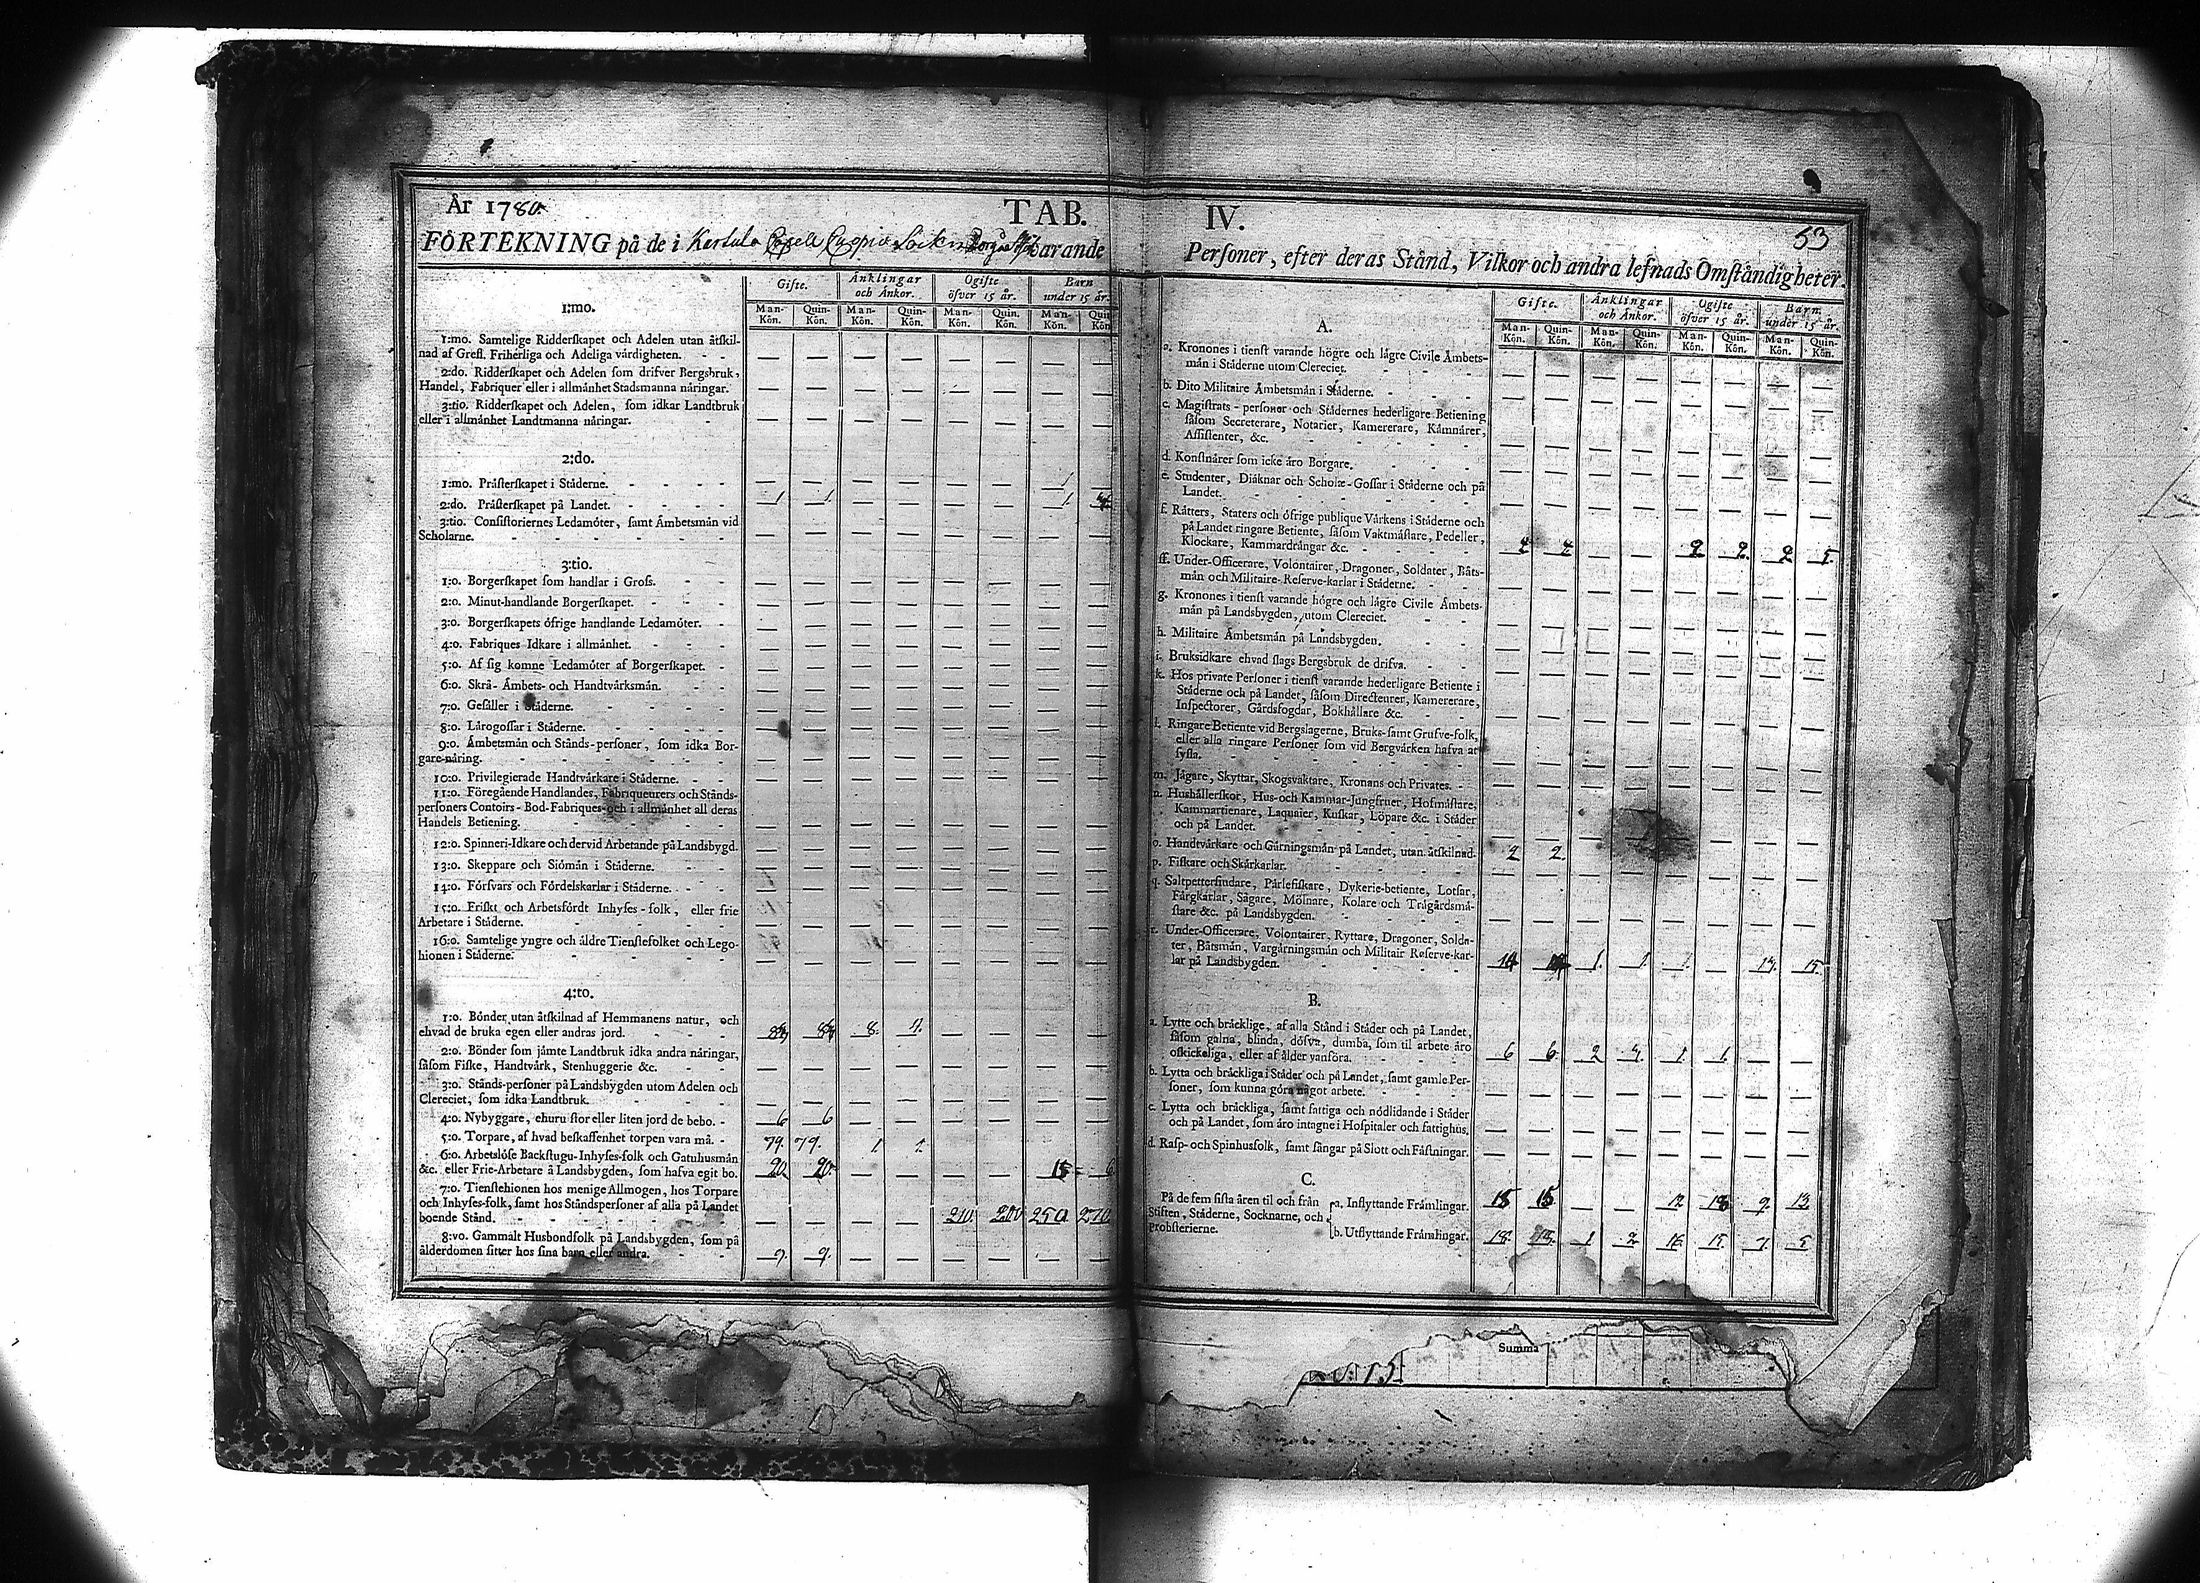 År 1780. TAB. IV.
53
FÖRTEKNING på de i Kerstula Capell Lockn varande Personer, efter deras Stånd, Vilkor och andra lefnads Omständigheter.
Gifte. Änklingar och Änkor. Ogifte öfver 15 år. Barn under 15 år.
Man-Kön. Quin-Kön. Man-Kön. Quin-Kön. Man-Kön. Quin-Kön. Man-Kön. Quin-Kön.
1:mo.
1:mo. Samtelige Ridderskapet och Adelen utan åtskil-
nad af Grefl. Friherliga och Adeliga värdigheten. — — — — — — — —
2:do. Ridderskapet och Adelen som drifver Bergsbruk,
Handel, Fabriquer eller i allmänhet Stadsmanna näringar. — — — — — — — —
3:tio. Ridderskapet och Adelen, som idkar Landtbruk
eller i allmänhet Landtmanna näringar. — — — — — — — —
2:do.
1:mo. Prästerskapet i Städerne. — — — — — — 1 —
2:do. Prästerskapet på Landet. 1 1 — — — — 1 4
3:tio. Consistoriernes Ledamöter, samt Ämbetsmän vid
Scholarne. — — — — — — — —
3:tio.
1:o. Borgerskapet som handlar i Gross. — — — — — — — —
2:o. Minut-handlande Borgerskapet. — — — — — — — —
3:o. Borgerskapets öfrige handlande Ledamöter. — — — — — — — —
4:o. Fabriques Idkare i allmänhet. — — — — — — — —
5:o. Af sig komne Ledamöter af Borgerskapet. — — — — — — — —
6:o. Skrå- Ämbets- och Handtvärksmän. — — — — — — — —
7:o. Gesäller i Städerne. — — — — — — — —
8:o. Lärogossar i Städerne. — — — — — — — —
9:o. Ämbetsmän och Stånds-personer, som idka Bor-
gare-näring. — — — — — — — —
10:o. Privilegierade Handtvärkare i Städerne. — — — — — — — —
11:o. Föregående Handlandes, Fabriqueurers och Stånds-
personers Contoirs- Bod-Fabriques- och i allmänhet all deras
Handels Betiening. — — — — — — — —
12:o. Spinneri-Idkare och dervid Arbetande på Landsbygd. — — — — — — — —
13:o. Skeppare och Siömän i Städerne. — — — — — — — —
14:o. Försvars och Fördelskarlar i Städerne. — — — — — — — —
15:o. Friskt och Arbetsfördt Inhyses-folk, eller frie
Arbetare i Städerne. — — — — — — — —
16:o. Samtelige yngre och äldre Tienstefolket och Lego-
hionen i Städerne. — — — — — — — —
4:to.
1:o. Bönder utan åtskilnad af Hemmanens natur, och
ehvad de bruka egen eller andras jord. 8. 7. — — — —
2:o. Bönder som jämte Landtbruk idka andra näringar,
såsom Fiske, Handtvärk, Stenhuggerie &c. — — — — — — — —
3:o. Stånds-personer på Landsbygden utom Adelen och
Clereciet, som idka Landtbruk. — — — — — — — —
4:o. Nybyggare, ehuru stor eller liten jord de bebo. 6 6 — — — — — —
5:o. Torpare, af hvad beskaffenhet torpen vara må. 79 79. 1. 1. — — — —
6:o. Arbetslöse Backstugu-Inhyses-folk och Gatuhusmän
&c. eller Frie-Arbetare å Landsbygden, som hafva egit bo. 20 20 — — — — 15 6
7:o. Tienstehionen hos menige Allmogen, hos Torpare
och Inhyses-folk, samt hos Ståndspersoner af alla på Landet
boende Stånd. — — — — 210 200 250 270
8:vo. Gammalt Husbondfolk på Landsbygden, som på
ålderdomen sitter hos sina barn eller andra. 9. 9. — — — — — —
Gifte. Änklingar och Änkor. Ogifte öfver 15 år. Barn under 15 år.
Man-Kön. Quin-Kön. Man-Kön. Quin-Kön. Man-Kön. Quin-Kön. Man-Kön. Quin-Kön.
A.
a. Kronones i tienst varande högre och lägre Civile Ämbets-
män i Städerne utom Clereciet. — — — — — — — —
b. Dito Militaire Ämbetsmän i Städerne. — — — — — — — —
c. Magistrats-personer och Städernes hederligare Betiening
såsom Secreterare, Notarier, Kamererare, Kämnärer,
Assistenter, &c. — — — — — — — —
d. Konstnärer som icke äro Borgare. — — — — — — — —
e. Studenter, Diäknar och Schole-Gossar i Städerne och på
Landet. — — — — — — — —
f. Rätters, Staters och öfrige publique Värkens i Städerne och
på Landet ringare Betiente, såsom Vaktmästare, Pedeller,
Klockare, Kammardrängar &c. 4 4 — — 2 2. 2 5.
ff. Under-Officerare, Volontairer, Dragoner, Soldater, Båts-
män och Militaire-Reserve-karlar i Städerne. — — — — — — — —
g. Kronones i tienst varande högre och lägre Civile Ämbets-
män på Landsbygden, utom Clereciet. — — — — — — — —
h. Militaire Ämbetsmän på Landsbygden. — — — — — — — —
i. Bruksidkare ehvad slags Bergsbruk de drifva. — — — — — — — —
k. Hos private Personer i tienst varande hederligare Betiente i
Städerne och på Landet, såsom Directeurer, Kamererare,
Inspectorer, Gårdsfogdar, Bokhållare &c. — — — — — — — —
l. Ringare Betiente vid Bergslagerne, Bruks- samt Grufve-folk,
eller alla ringare Personer som vid Bergvärken hafva at
sysla. — — — — — — — —
m. Jägare, Skyttar, Skogsvaktare, Kronans och Privates. — — — — — — — —
n. Hushållerskor, Hus-och Kammar-Jungfruer, Hofmästare,
Kammartienare, Laquaier, Kuskar, Löpare &c. i Städer
och på Landet. — — — — — — — —
o. Handtvärkare och Gärningsmän på Landet, utan åtskilnad. 2 2. — — — — — —
p. Fiskare och Skärkarlar. — — — — — — — —
q. Saltpettersiudare, Pärlefiskare, Dykerie-betiente, Lotsar,
Färgkarlar, Sågare, Mölnare, Kolare och Trägårdsmä-
stare &c. på Landsbygden. — — — — — — — —
r. Under-Officerare, Volontairer, Ryttare, Dragoner, Solda-
ter, Båtsmän, Vargärningsmän och Militair Reserve-kar-
lar på Landsbygden. 1. 1. 1. — 17. 15
B.
a. Lytte och bräcklige, af alla Stånd i Städer och på Landet,
såsom galna, blinda, döfva, dumba, som til arbete äro
oskickeliga, eller af ålder vanföra. 6 6. 2 4. 1. 1. — —
b. Lytta och bräckliga i Städer och på Landet, samt gamle Per-
soner, som kunna göra något arbete. — — — — — — — —
c. Lytta och bräckliga, samt fattiga och nödlidande i Städer
och på Landet, som äro intagne i Hospitaler och fattighus. — — — — — — — —
d. Rasp- och Spinhusfolk, samt fångar på Slott och Fästningar. — — — — — — — —
C.
På de fem sista åren til och från
Stiften, Städerne, Socknarne, och
Probsterierne.
a. Inflyttande Främlingar. 15 15 12 18 9. 13.
b. Utflyttande Främlingar. 18. 13. 1 2 16 15. 7. 5
Summa